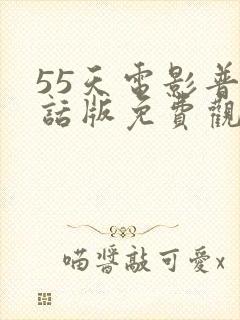 55天電影普
話版免費觀
喵醬敲可愛x